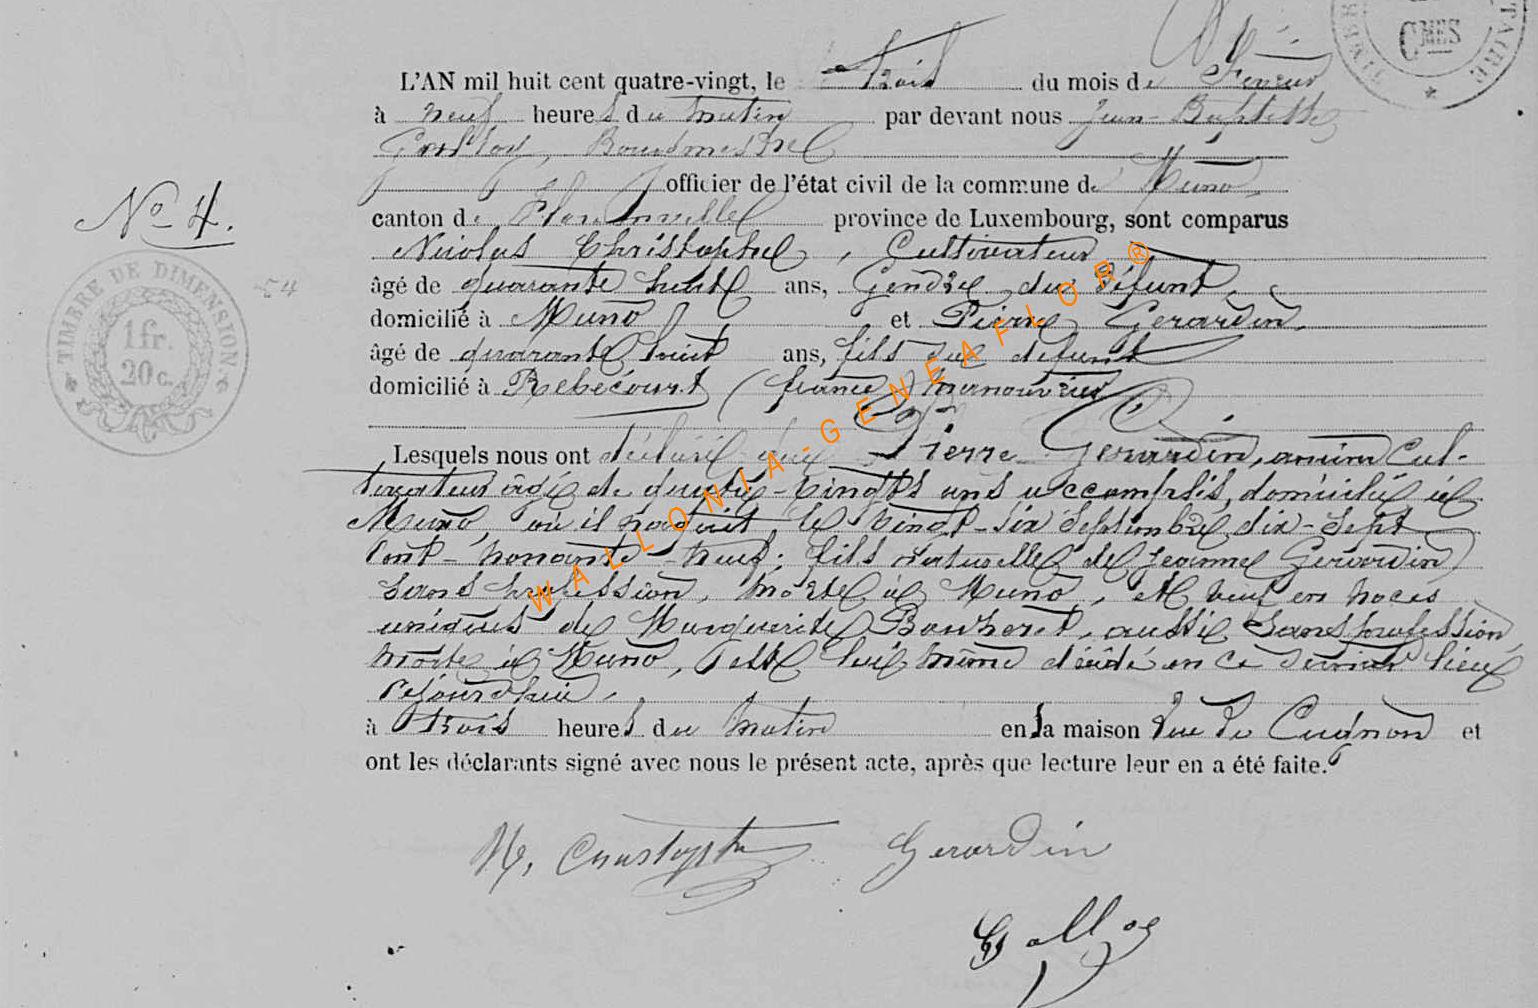 L'AN mil huit cent quatre-vingt, le trois du mois de Fevrier
à neuf heures du matin par devant nous Jean-Baptiste
Bourgmestre
officier de l'état civil de la commune de Muno,
canton de Florenville province de Luxembourg, sont comparus
Nicolas Christophe, Cultivateur
âgé de quarante huit ans, Gendre du défunt,
domicilié à Muno et Pierre Gerardin,
âgé de quarante huit ans, fils du défunt
domicilié à Rebécourt (france) manouvrier
Lesquels nous ont déclaré que Pierre Gerardin, ancien Cul-
tivateur âgé de quatre-vingts ans accomplis, domicilié à
Muno, où il naquit le vingt-six Septembre dix-sept
Cent-nonante-neuf; fils naturelle de Jeanne Gerardin
Sans profession, morte à Muno, et veuf en noces
uniques de Marguerite aussi Sans profession,
morte à Muno, est lui même décédé en ce dernier lieu
cejourd'hui,
à trois heures du matin en sa maison Rue du Cugnon et
ont les déclarants signé avec nous le présent acte, après que lecture leur en a été faite.
N. Christophe Gerardin
No 4.
54
TIMBRE DE DIMENSION.
1fr.
20c.
CMES
WALLONIA-GENEAFLOR®